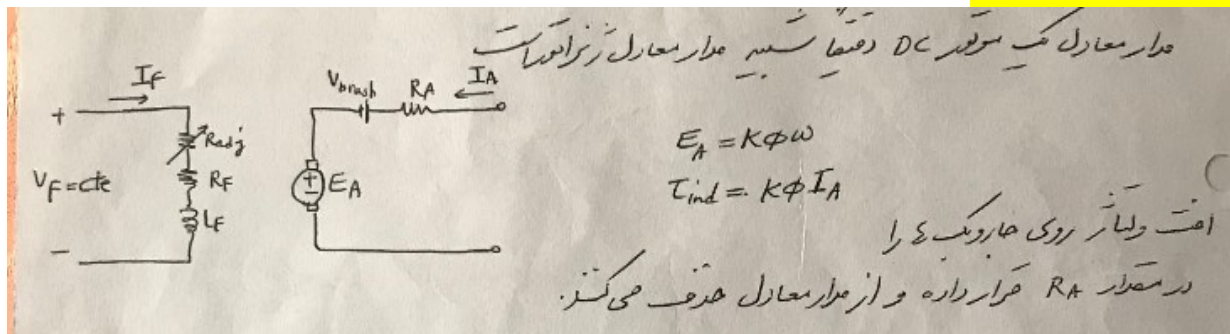 مدار معادل یک موتور DC دقیقا شبیه مدار معادل ژنراتور است
I_F
V_brush R_A I_A
+
R_adj
V_F = cte R_F E_A
L_F
−
E_A = Kφω
τ_ind = KφI_A
افت ولتاژ روی جاروبک ها را
در مقدار R_A قرار داده و از مدار معادل حذف می کنند.